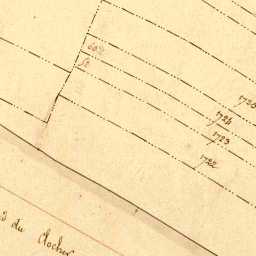 602
52
1725
1724
1723
1722
du Clocher